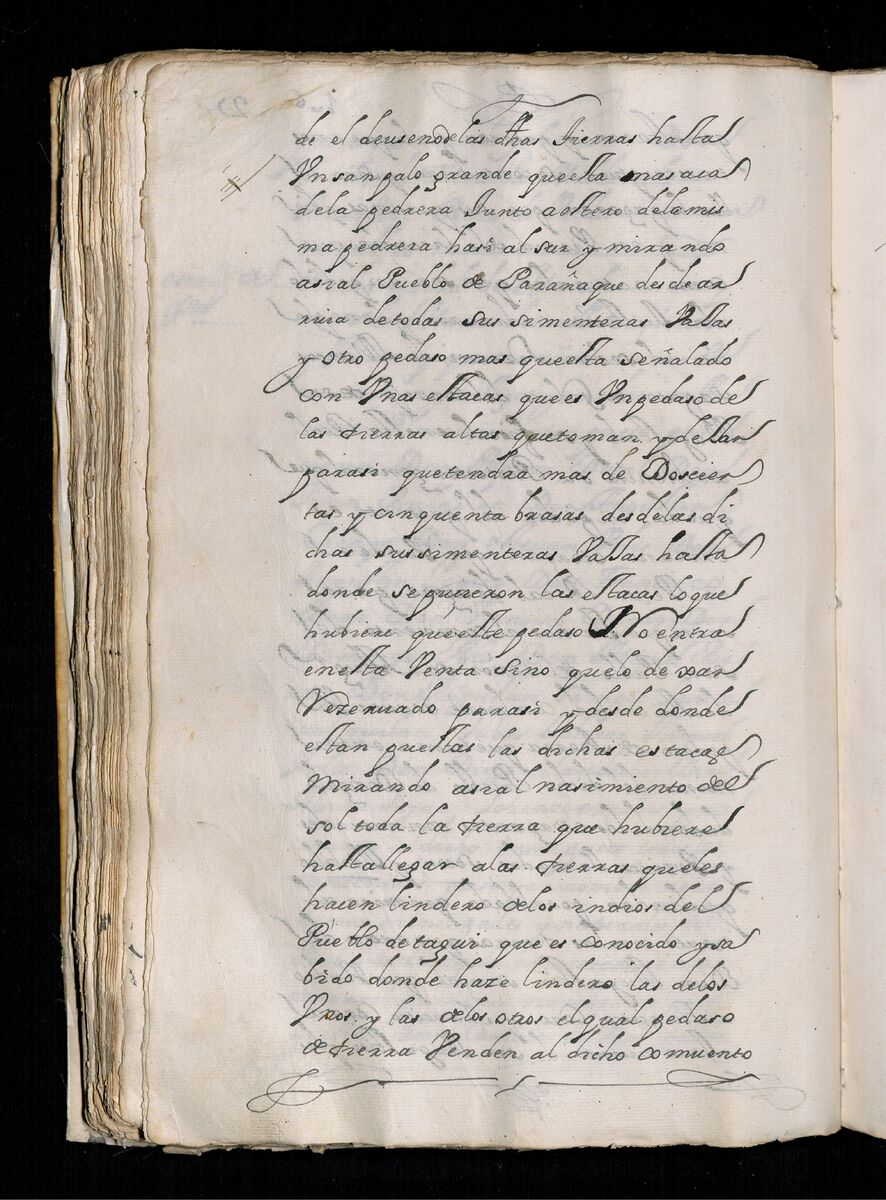 de el deuseno delas dhas Tierras hasta
Vn sanpalo grande que esta mas aca
dela pedrera Junto a estero dela mis
ma pedrera hasi al sur y mirando
asi al Pueblo de Parañaque desde ar
riua de todas sus simenteras Vallas
y otro pedaso mas que esta señalado
con Vnas estacas que es Vn pedaso de
las tierras altas que toman y dellar
parasi que tendra mas de Doscien
tas y cinquenta brasas desde las di
chas sus simenteras Vallas hasta
donde se pucieron las estacas lo que
hubiere que este pedaso No entra
en esta Venta Sino que lo dexar
Rezeruado parasi y desde donde
estan puestas las dichas estacas
Mirando asi al nasimiento del
sol toda la tierra que hubiere
hasta llegar alas tierras que les
hacen lindero delos indios del
Pueblo de taguî que es conocido y sa
bido donde haze lindero las delos
Vnos y las delos otros el qual pedaso
de tierra Venden al dicho comuento